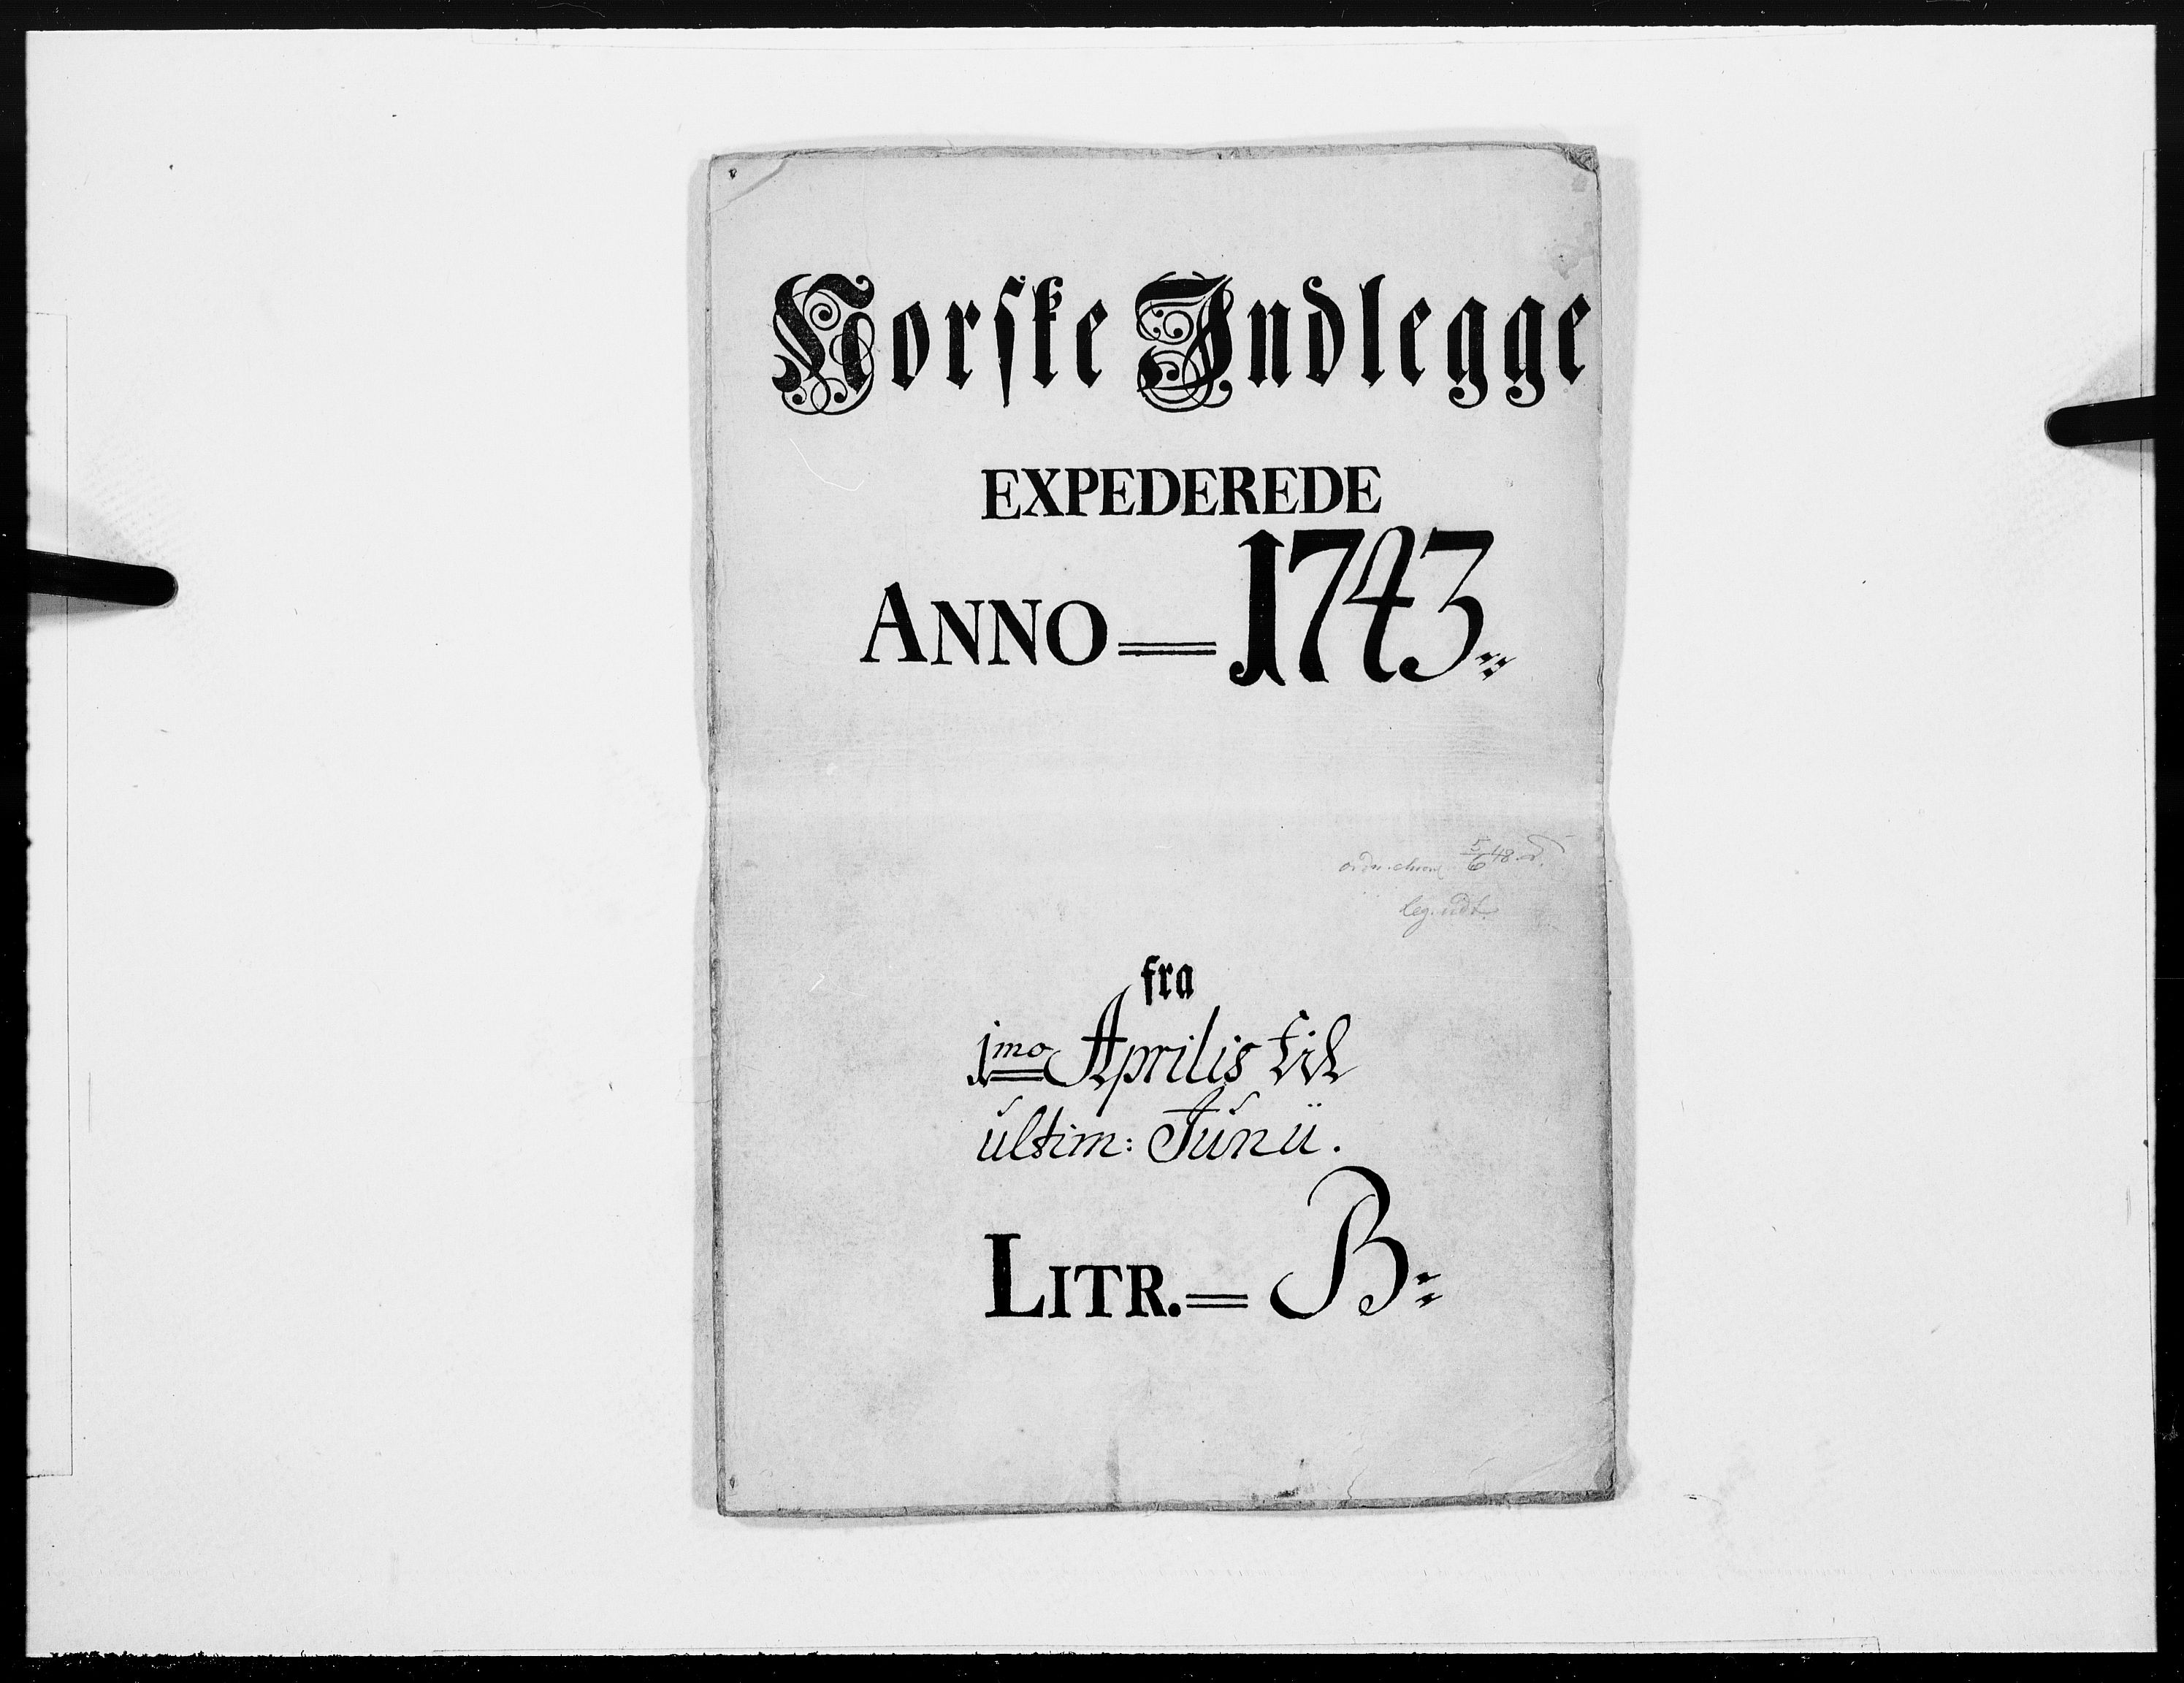 Norske Indlegge
EXPEDEREDE
ANNO = 1743.
5/6 48
leg. udt.
fra
1mo Aprilis til
ultim: Junii.
LITR. = B